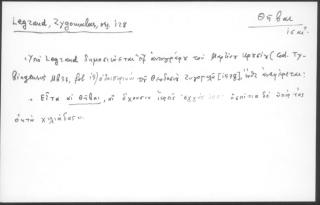 Legrand, Zygomalas, σ. 128
Θῆβαι
ις αἰ.
Ὑπὸ Legrand δημοσιεύεται ἐξ ἀντιγράφου τοῦ Μαρτίνου Κρουσίου (Cod. Ty-
bingensis Mb 37, fol. 15) ἐπιστολὴ τοῦ Θεοδοσίου Ζυγομαλᾶ [1578], ὅπου ἀναφέρεται:
Εἶτα αἱ Θῆβαι, αἱ ἔχουσαι ὁσπίτια δὲ ὑπὲρ τὰς
ὀκτὼ χιλιάδας